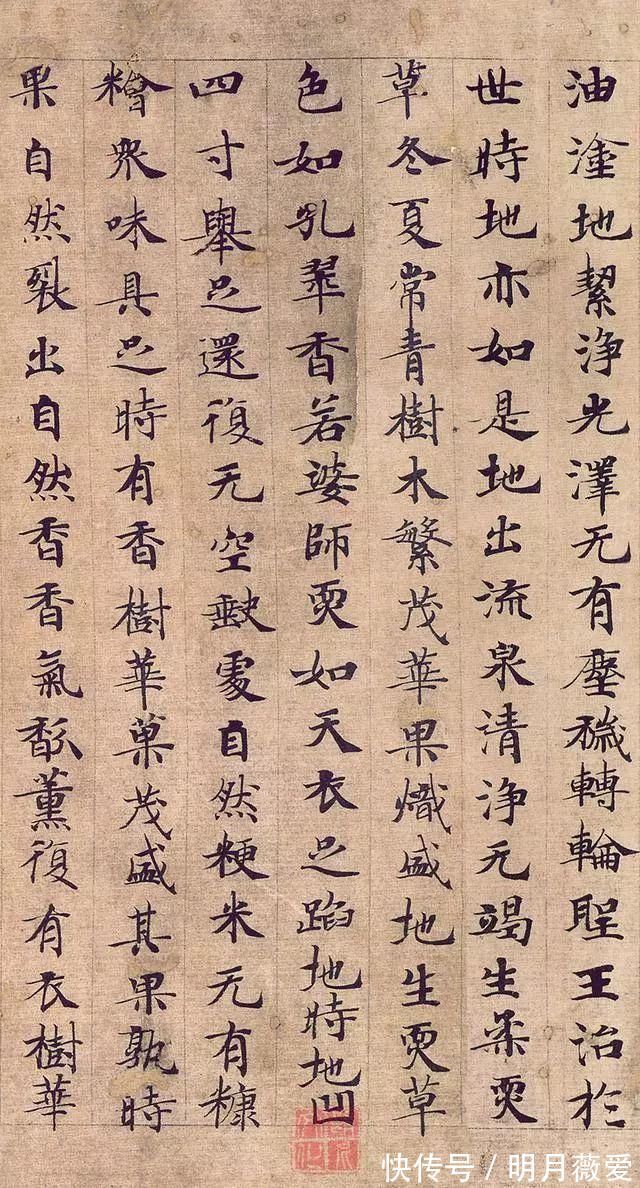 油塗地絜浄光澤无有塵穢轉輪聖王治於
世時地亦如是地出流泉清浄无竭生柔耎
草冬夏常青樹木繁茂華果熾盛地生耎草
色如孔翠香若婆師耎如天衣足蹈地時地凹
四寸舉足還復无空缺處自然粳米无有糠
糩衆味具足時有香樹華菓茂盛其果孰時
果自然裂出自然香香氣馝薰復有衣樹華
快传号 / 明月薇爱